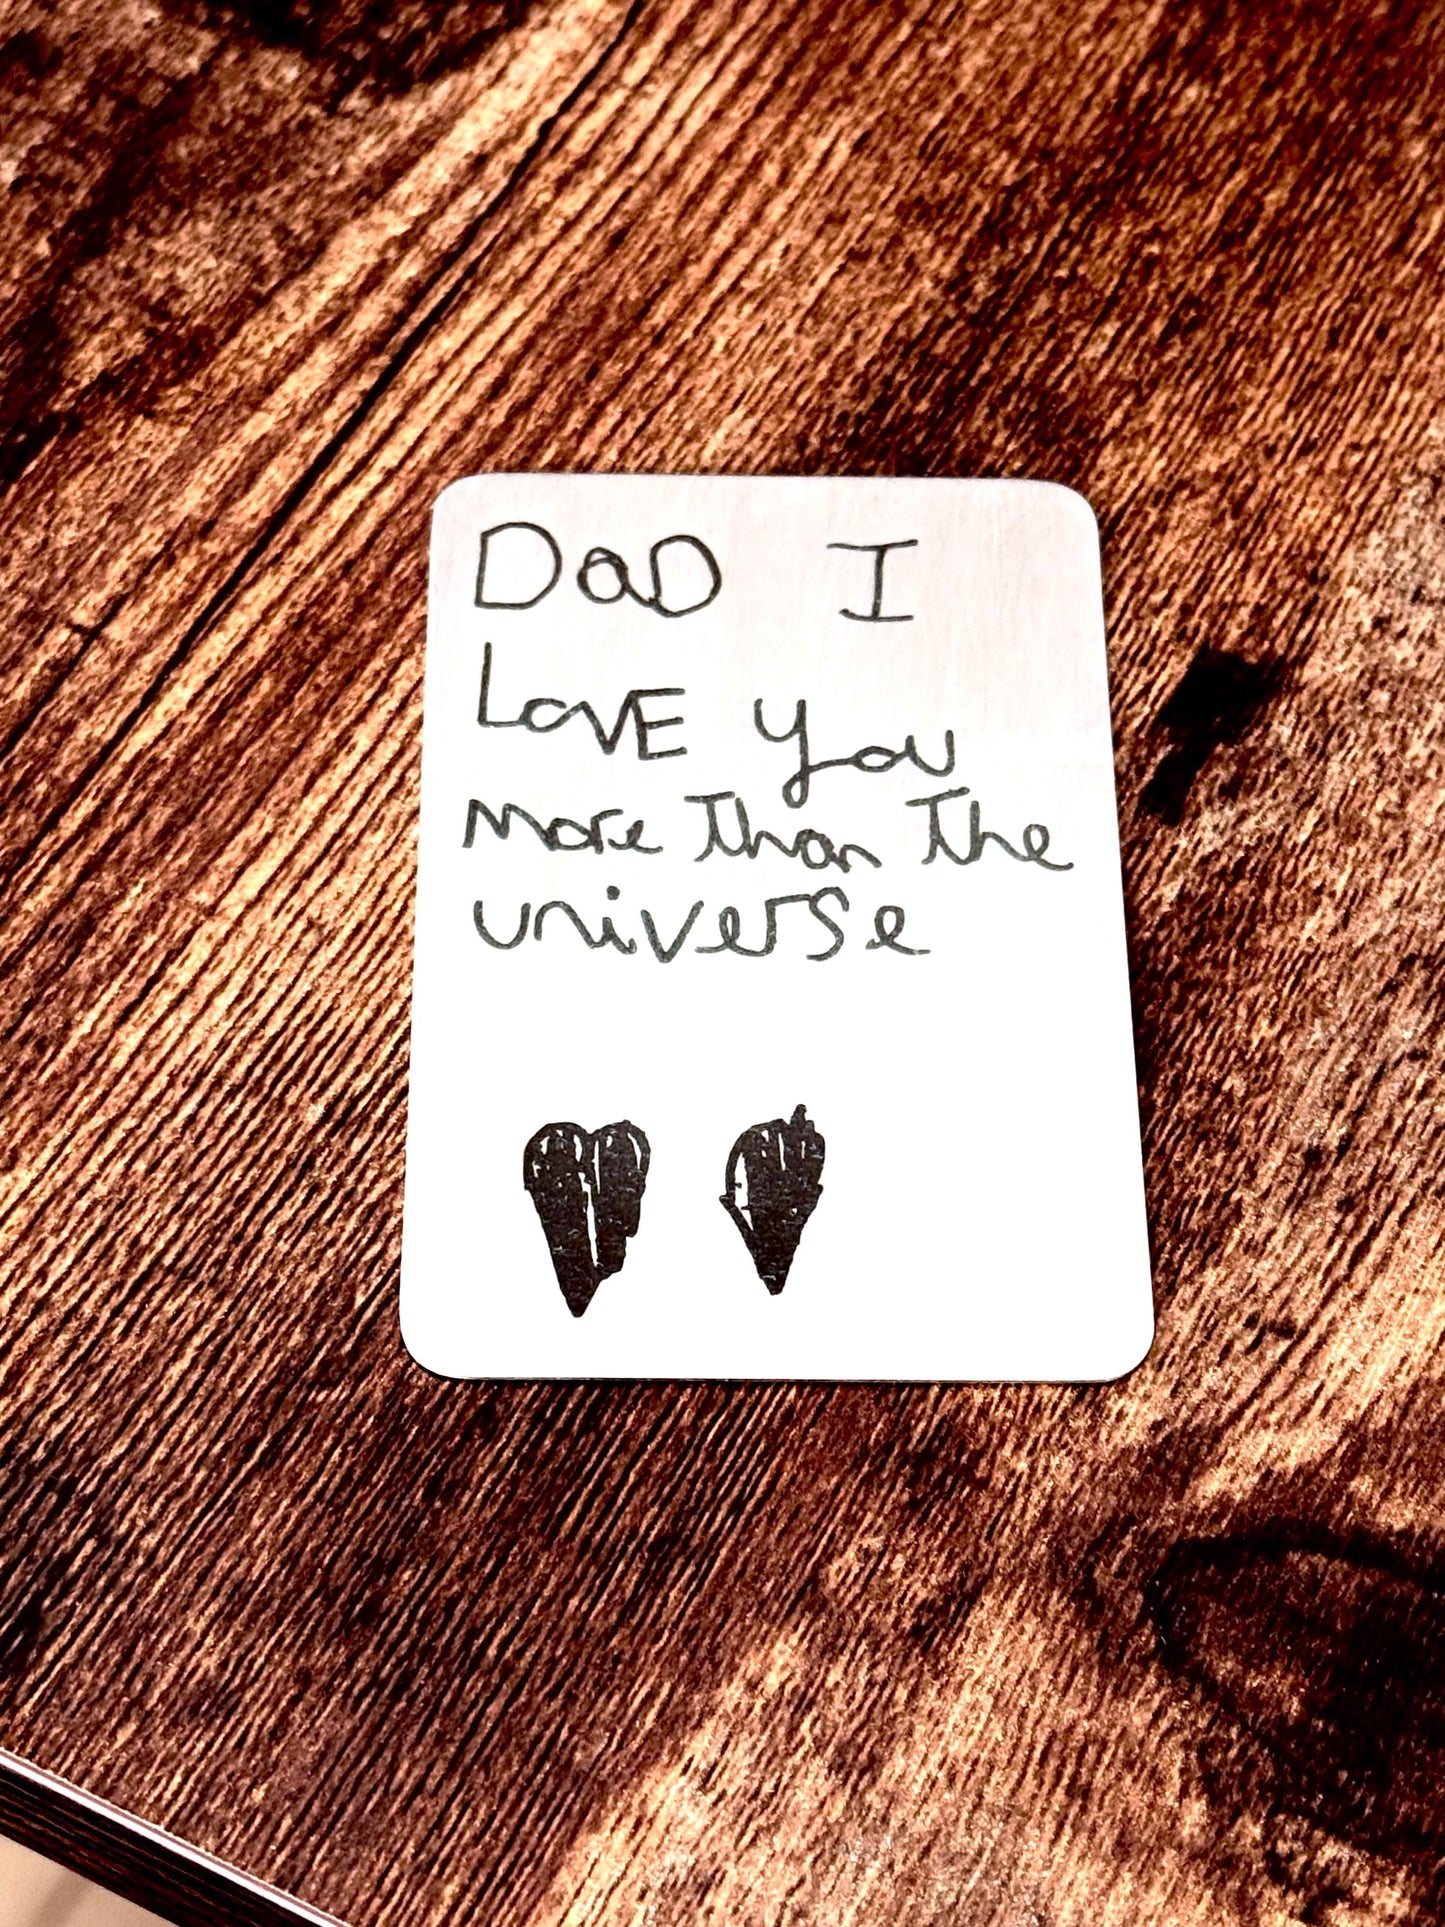 DaD I
LovE you
more Than The
universe